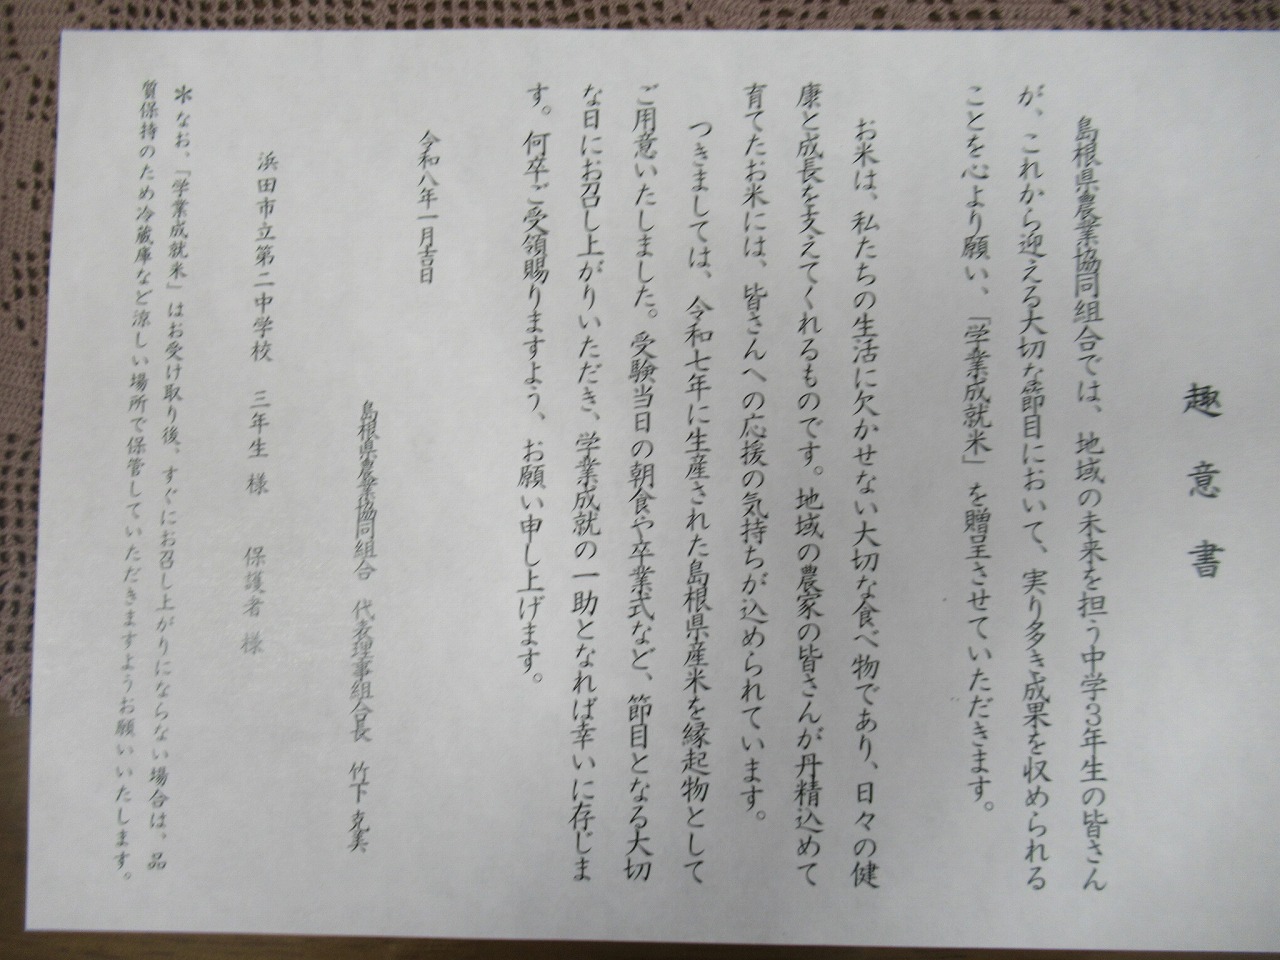 趣意書
島根県農業協同組合では、地域の未来を担う中学3年生の皆さん
が、これから迎える大切な節目において、実り多き成果を収められる
ことを心より願い、「学業成就米」を贈呈させていただきます。
お米は、私たちの生活に欠かせない大切な食べ物であり、日々の健
康と成長を支えてくれるものです。地域の農家の皆さんが丹精込めて
育てたお米には、皆さんへの応援の気持ちが込められています。
つきましては、令和七年に生産された島根県産米を縁起物として
ご用意いたしました。受験当日の朝食や卒業式など、節目となる大切
な日にお召し上がりいただき、学業成就の一助となれば幸いに存じま
す。何卒ご受領賜りますよう、お願い申し上げます。
令和八年一月吉日
島根県農業協同組合 代表理事組合長 竹下 克美
浜田市立第二中学校 三年生 様 保護者 様
＊なお、「学業成就米」はお受け取り後、すぐにお召し上がりにならない場合は、品
質保持のため冷蔵庫など涼しい場所で保管していただきますようお願いいたします。